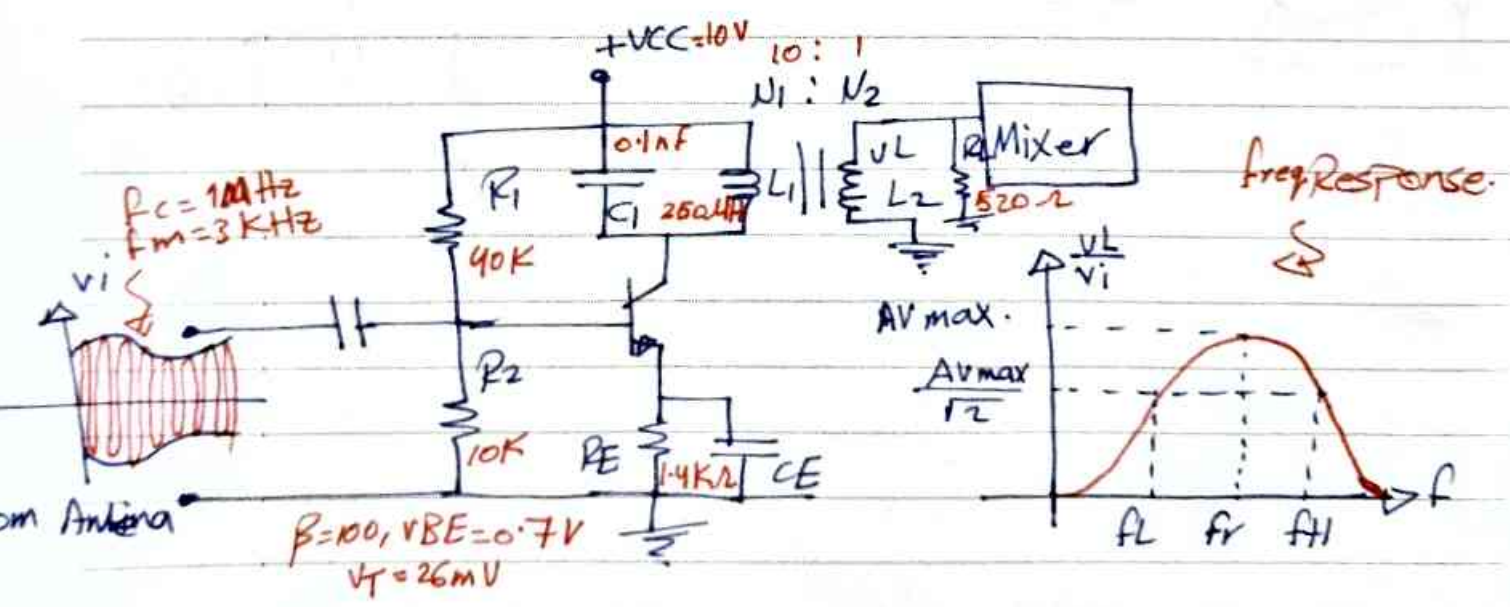 +VCC=10V
10 : 1
N1 : N2
0.1nF
R1
C1
250μH
L1
vL
L2
RL
520Ω
Mixer
freq Response.
fc = 1MHz
fm = 3KHz
vi
40K
R2
10K
RE
1.4KΩ
CE
om Antena
β=100, VBE=0.7V
VT = 26mV
vL
vi
AV max.
AV max
√2
fL
fr
fH
f